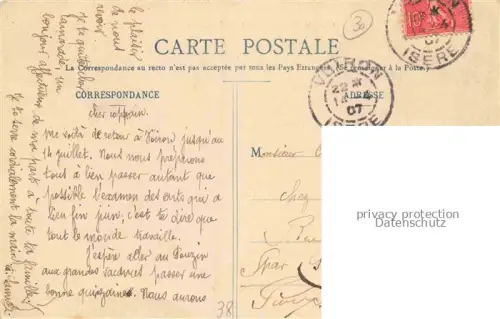 CARTE POSTALE
La Correspondance au recto n'est pas acceptée par tous les Pays Etrangers. (Se renseigner à la Poste.)
CORRESPONDANCE
ADRESSE
VOIRON
ISERE
07
ISERE
07
30
cher copain.
me voilà de retour à Voiron jusqu'au
14 juillet. Nous nous préparons
tous à bien passer autant que
possible l'examen des arts qui a
lieu fin juin; c'est te dire que
tout le monde travaille.
J'espère aller au Pouzin
aux grandes vacances passer une
bonne quinzaine. Nous aurons
le plaisir
de nous
revoir.
Je te quitte cher
camarade, un
bonjour affectueux de ma part à toute ta famille.
Je te serre cordialement la main
Monsieur
chez
par
38
privacy protection
Datenschutz